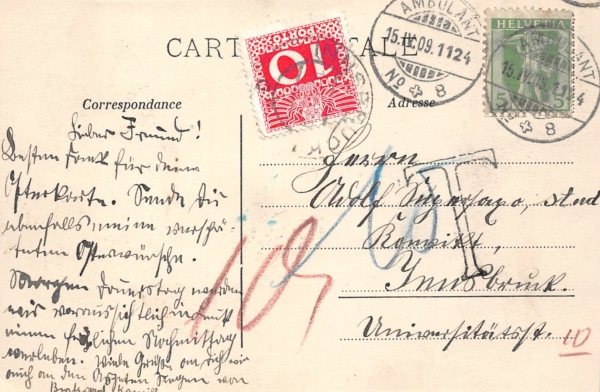 CARTE POSTALE
AMBULANT
15.IV.09.1124
No 8
HELVETIA
5
AMBULANT
15.IV.09.1124
8
PORTO
10
Correspondance
Adresse
Lieber Freund!
Besten Dank für deine
Osterkarte. Sende dir
ebenfalls meine verspä-
teten Osterwünsche.
Morgen Donnerstag werden
wir voraussichtlich
einen fröhlichen Nachmittag
verleben. Viele Grüße an dich wie
auch an den von
Herrn
Adolf stud
Konvikt,
Innsbruck.
Universitätsst.
T
10
10